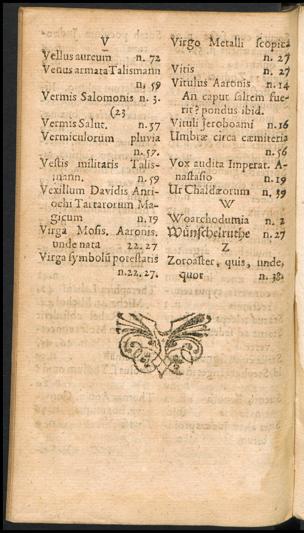 V
Vellus aureum n. 72
Venus armata Talismann
n, 59
Vermis Salomonis n. 3.
(23
Vermis Salut. n. 57
Vermiculorum pluvia
n. 57.
Vestis militatis Talis-
mann. n. 59
Vexillum Davidis Anti-
ochi Tartarorum Ma-
gicum n. 19
Virga Mosis. Aaronis.
unde nata 22. 27
Virga symbolū potestatis
n. 22. 27.
Virgo Metalli scopica
n. 27
Vitis n. 27
Vitulus Aaronis n. 14
An caput saltem fue-
rit? pondus ibid.
Vituli Jeroboami n. 16
Umbræ circa cæmiteria
n. 56
Vox audita Imperat. A-
nastasio n. 19
Ur Chaldæorum n, 39
W
Woarchodumia n. 2
Wünschelruthe n. 27
Z
Zoroaster, quis, unde,
quot n. 38.